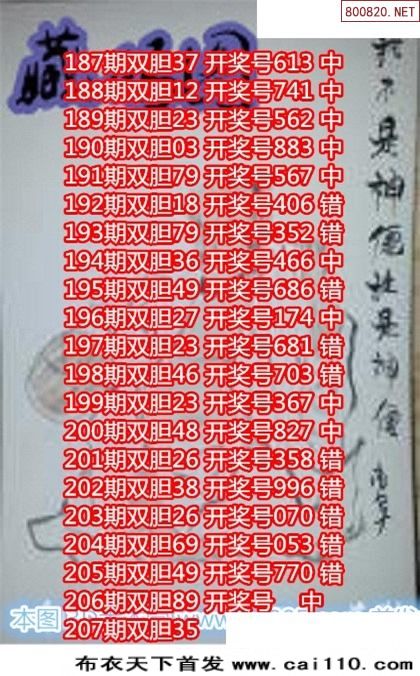 800820.NET
187期双胆37 开奖号613 中
188期双胆12 开奖号741 中
189期双胆23 开奖号562 中
190期双胆03 开奖号883 中
191期双胆79 开奖号567 中
192期双胆18 开奖号406 错
193期双胆79 开奖号352 错
194期双胆36 开奖号466 中
195期双胆49 开奖号686 错
196期双胆27 开奖号174 中
197期双胆23 开奖号681 错
198期双胆46 开奖号703 错
199期双胆23 开奖号367 中
200期双胆48 开奖号827 中
201期双胆26 开奖号358 错
202期双胆38 开奖号996 错
203期双胆26 开奖号070 错
204期双胆69 开奖号053 错
205期双胆49 开奖号770 错
206期双胆89 开奖号 中
207期双胆35
我不是神便社是神便
本图
布衣天下首发 www.cai110.com